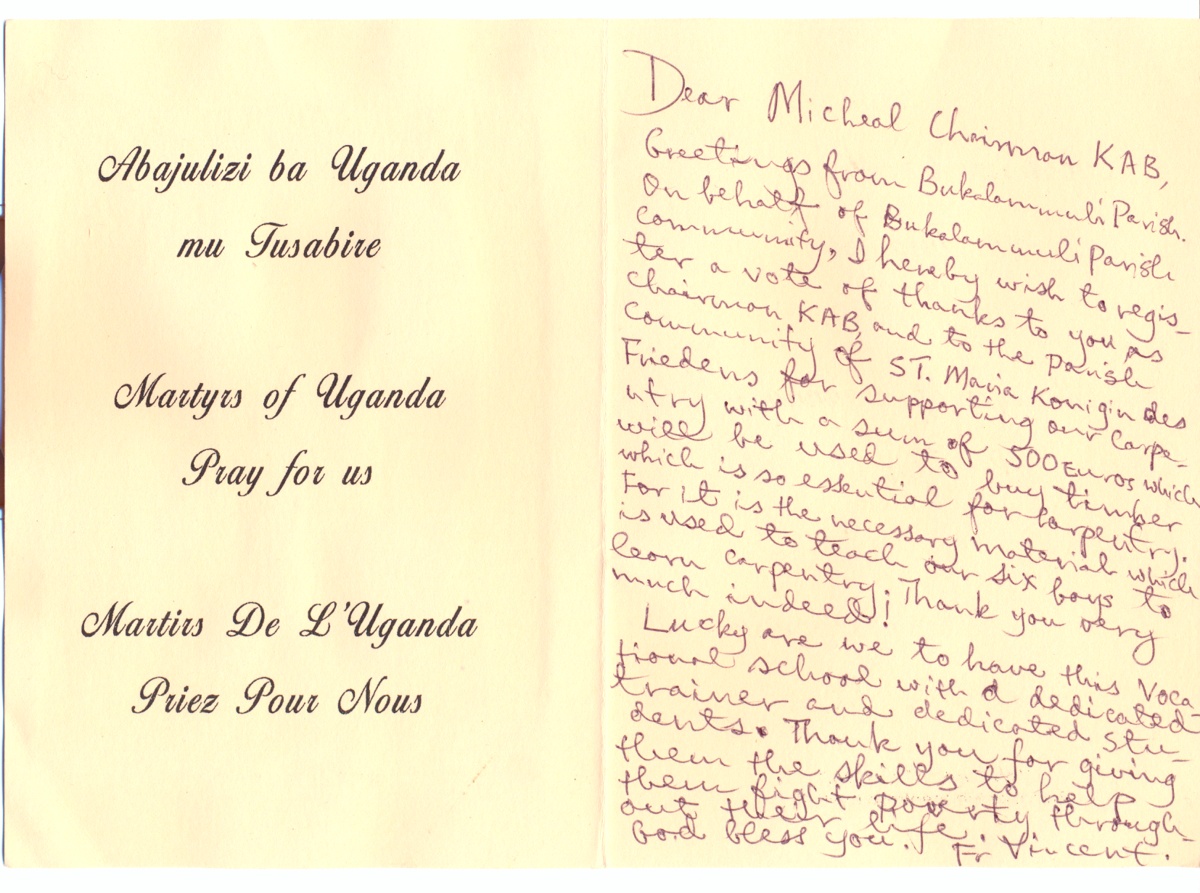 Abajulizi ba Uganda
mu Tusabire
Martyrs of Uganda
Pray for us
Martirs De L'Uganda
Priez Pour Nous
Dear Micheal Chairman KAB,
Greetings from Bukalammuli Parish.
On behalf of Bukalammuli Parish
community, I hereby wish to regis-
ter a vote of thanks to you as
Chairman KAB, and to the parish
community of ST. Maria Konigin des
Friedens for supporting our Carpe-
ntry with a sum of 500 Euros which
will be used to buy timber
which is so essential for Carpentry.
For it is the necessary material which
is used to teach our six boys to
learn carpentry; Thank you very
much indeed!
Lucky are we to have this Voca-
tional school with a dedicated
trainer and dedicated stu-
dents. Thank you for giving
them the skills to help
them fight poverty through-
out their life.
God bless you. Fr Vincent.